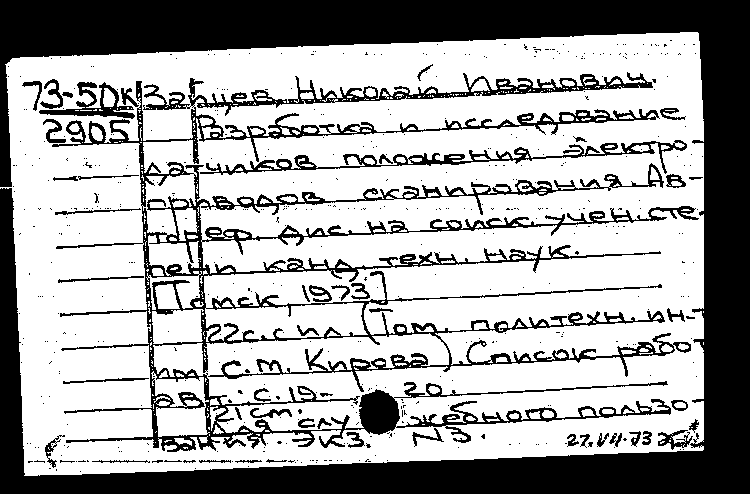 73-5ДК Зайцев, Николай Иванович.
2905 Разработка и исследование
датчиков положения электро-
приводов сканирования. Ав-
тореф. дис. на соиск. учен. сте-
пени канд. техн. наук.
[Томск, 1973].
22с. с ил. (Том. политехн. ин-т
им С.М. Кирова). Список работ
авт.: с. 19-20.
21 см.
Для служебного пользо-
вания. Экз. №3. 27.VII.73